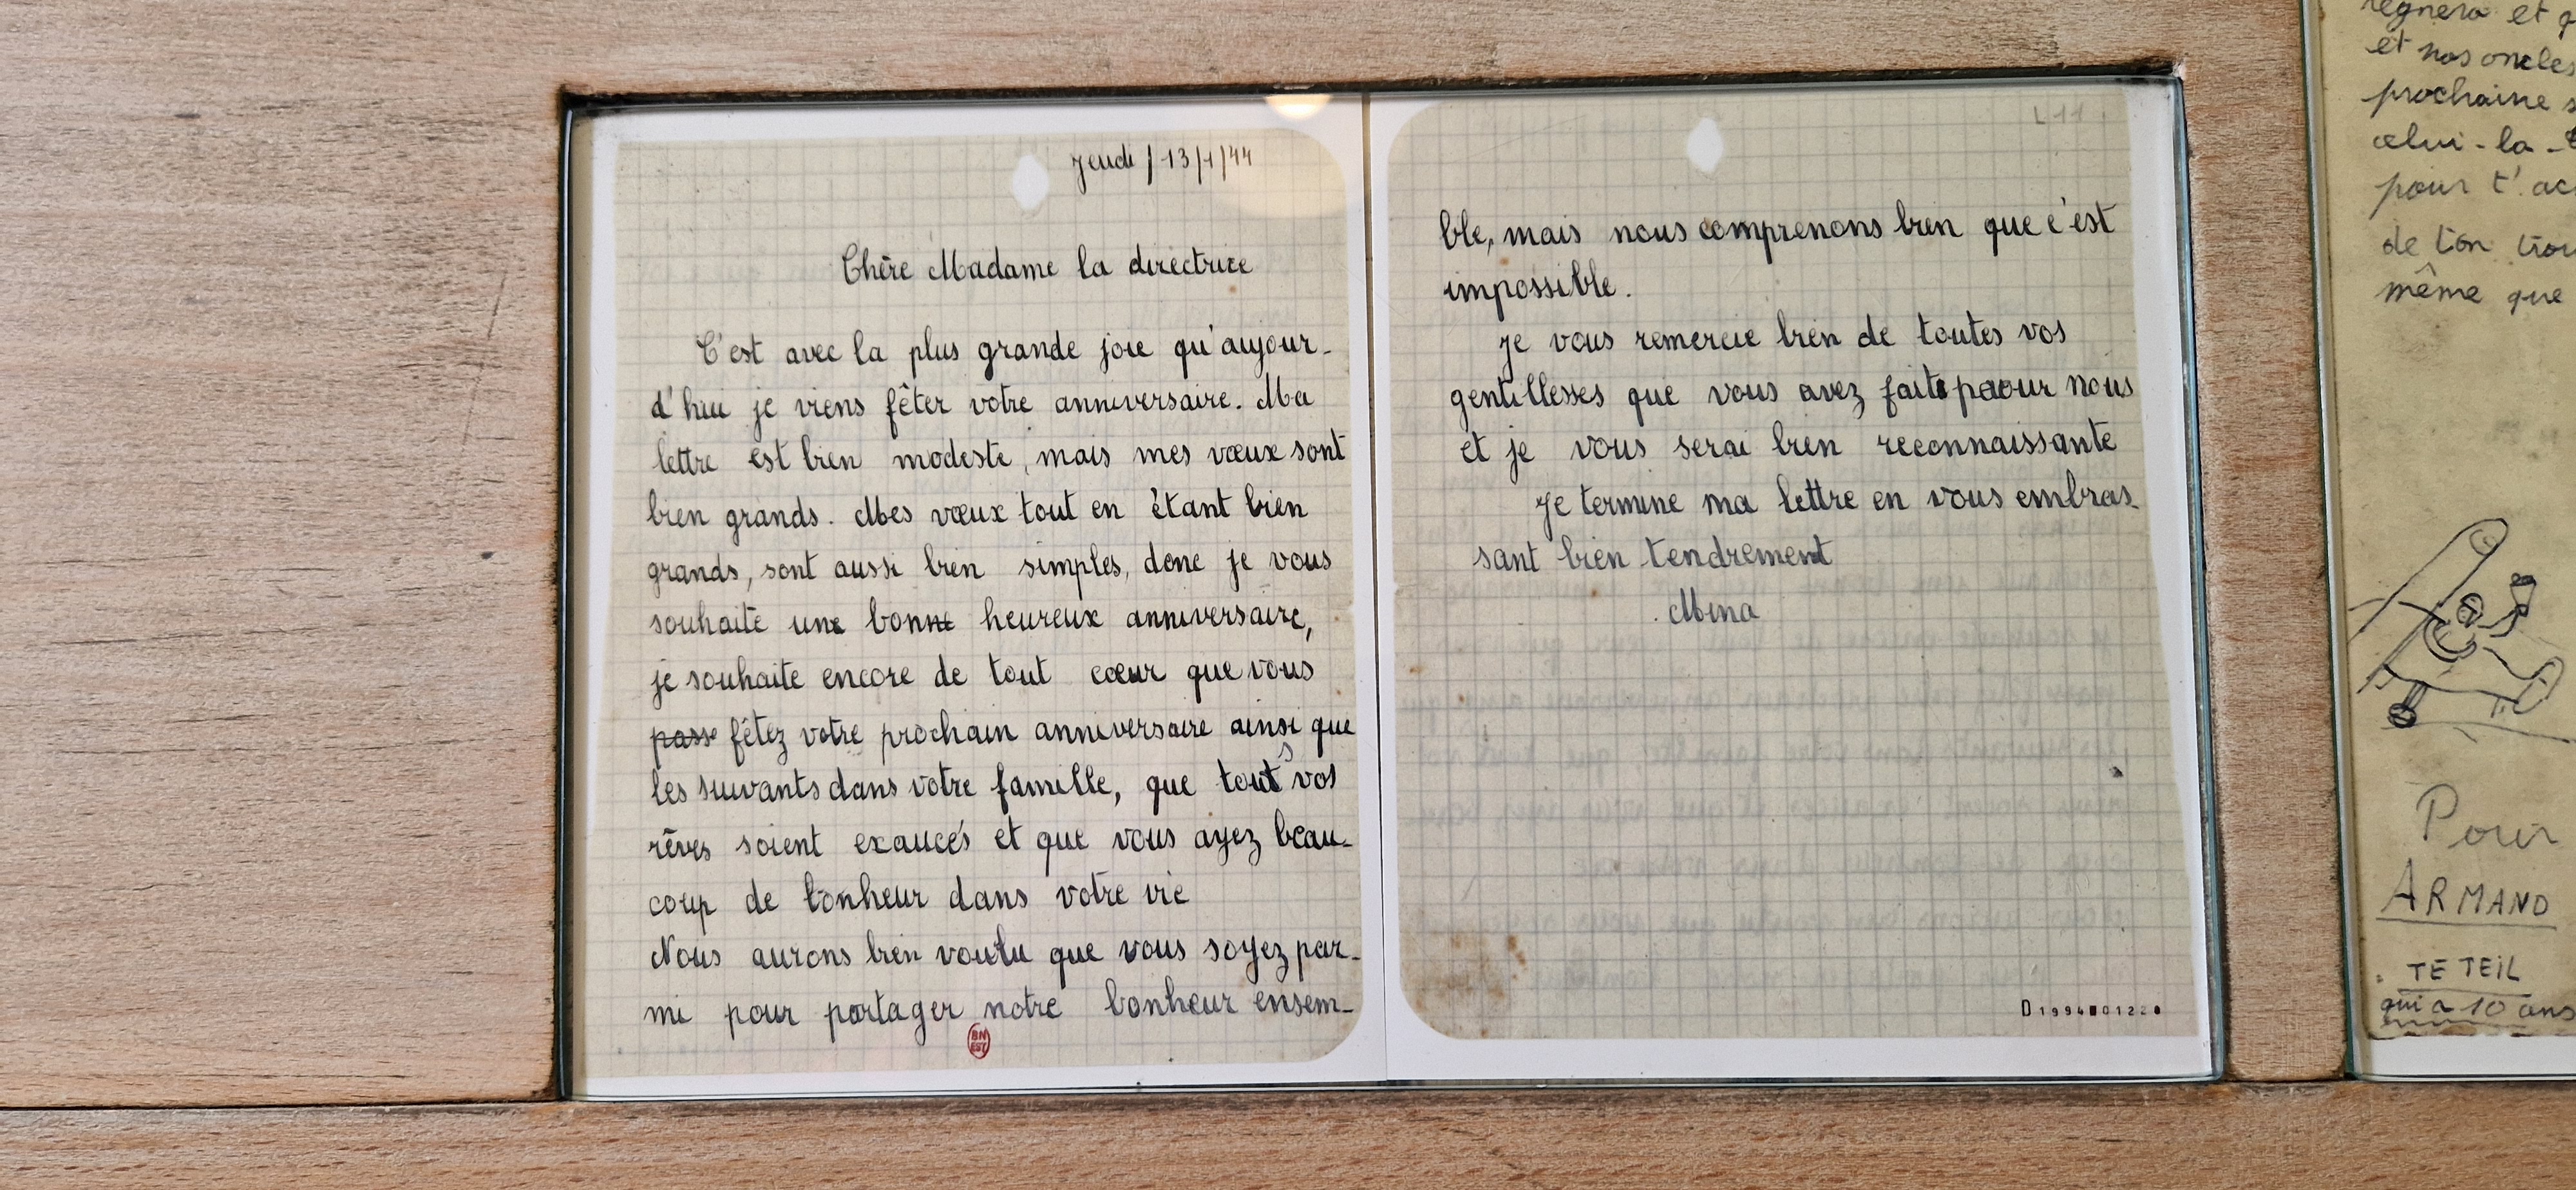 Jeudi / 13/1/44
Chère Madame la directrice
C'est avec la plus grande joie qu'aujour-
d'hui je viens fêter votre anniversaire. Ma
lettre est bien modeste, mais mes vœux sont
bien grands. Mes vœux tout en étant bien
grands, sont aussi bien simples, donc je vous
souhaite une bonne heureux anniversaire,
je souhaite encore de tout cœur que vous
passe fêtez votre prochain anniversaire ainsi que
les suivants dans votre famille, que touts vos
rêves soient exaucés et que vous ayez beau-
coup de bonheur dans votre vie
Nous aurons bien voulu que vous soyez par-
mi pour partager notre bonheur ensem-
BN
EST
L 11
ble, mais nous comprenons bien que c'est
impossible.
Je vous remercie bien de toutes vos
gentillesses que vous avez faits pour nous
et je vous serai bien reconnaissante
Je termine ma lettre en vous embras-
sant bien tendrement
Mina
régnera et
et nos oncles
prochaine
celui-la
pour t'
de ton
même que
Pour
ARMAND
TETEIL
qui a 10 ans